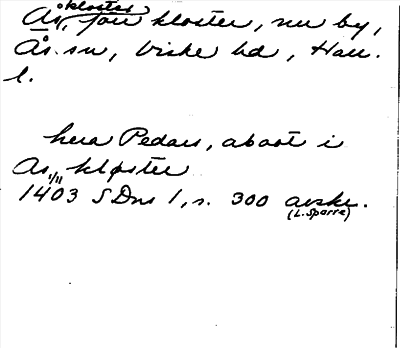 kloster
Ås, förr kloster, nu by,
Ås. sn, Viske hd, Hall.
l.
hera Pedars, abaat i
As kloster
1/11
1403 SDns 1, s. 300 avskr.
(L. Sparre)